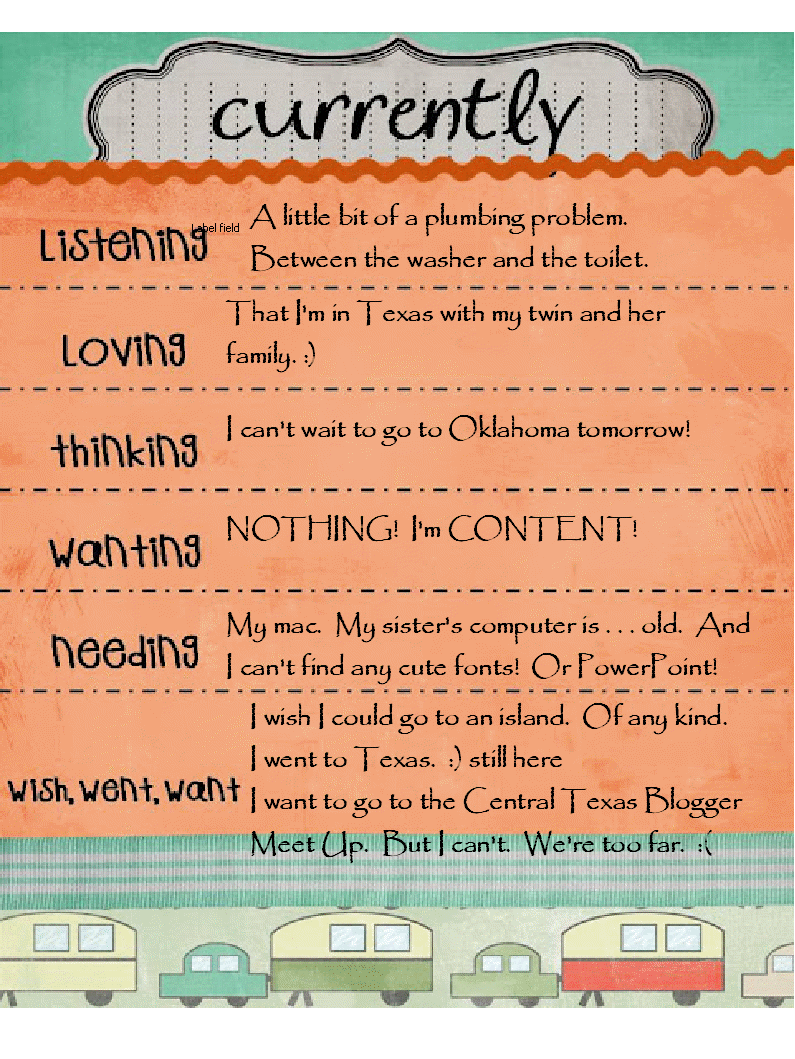 currently
Listening
Label field
A little bit of a plumbing problem.
Between the washer and the toilet.
Loving
That I'm in Texas with my twin and her
family. :)
thinking
I can't wait to go to Oklahoma tomorrow!
wanting
NOTHING! I'm CONTENT!
needing
My mac. My sister's computer is . . . old. And
I can't find any cute fonts! Or PowerPoint!
wish, went, want
I wish I could go to an island. Of any kind.
I went to Texas. :) still here
I want to go to the Central Texas Blogger
Meet Up. But I can't. We're too far. :(